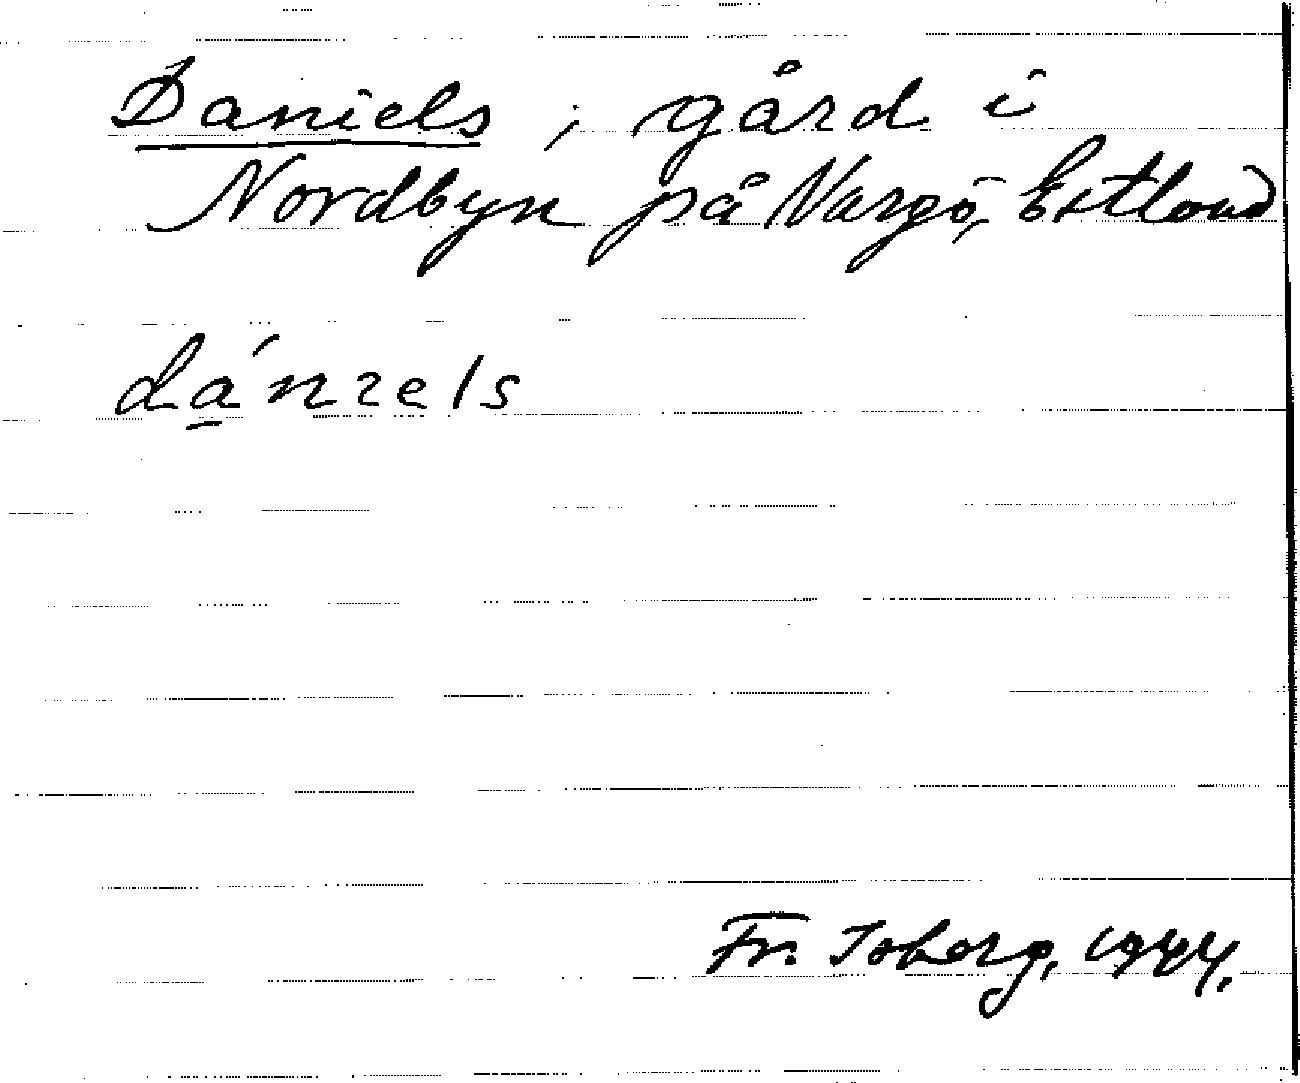 Daniels, gård i
Nordbyn på Nargö, Estland
dạ́nɿels
Fr. Isberg, 1944.